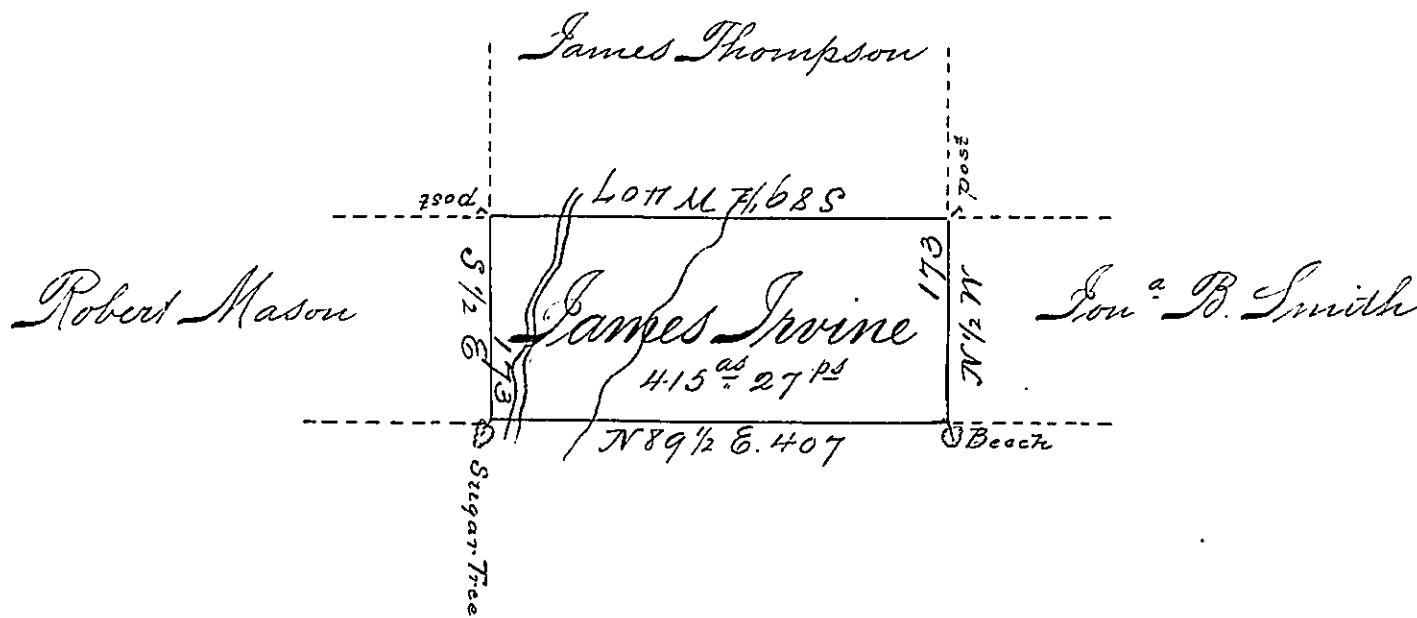 James Thompson
post
post
S 89½ W 407
Robert Mason
S ½ E
173
James Irvine
415 as 27 ps
173
N ½ W
Jona. B. Smith
N 89 ½ E. 407
Beech
Sugar Tree